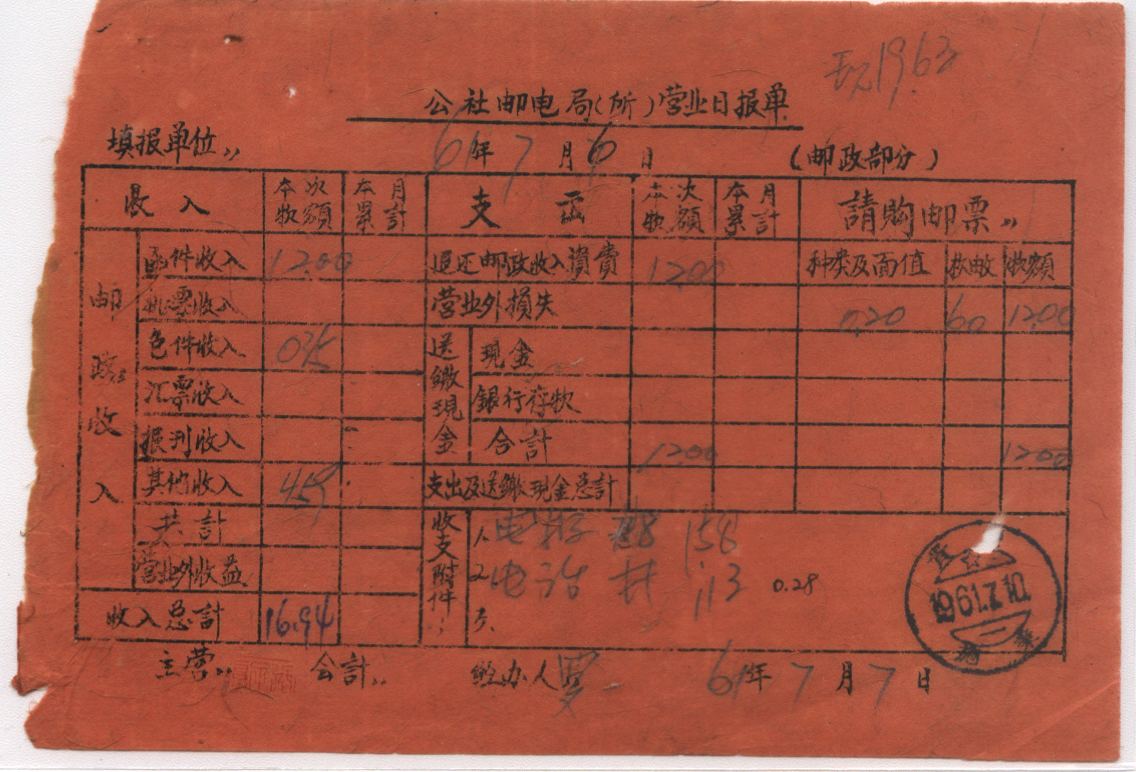 1963
公社邮电局(所)营业日报单
填报单位,, 61年7月6日 (邮政部分)
收入 本次收额 本月累計 支出 本次收额 本月累計 請购邮票,,
邮政收入 函件收入 12.00 退还邮政收入資費 12.00 种类及面值 枚数 款额
机票收入 营业外損失 0.20 60 12.00
包件收入 035 送繳現金 現金
汇票收入 銀行存款
报刊收入 合計 12.00 12.00
其他收入 459 支出及送繳現金总計
共計 收支附件,, 1. 158
营业外收益 2 电话 1.13 0.28
收入总計 16.94 3.
1961.7.10
主营,, 会計,, 经办人 61年7月7日